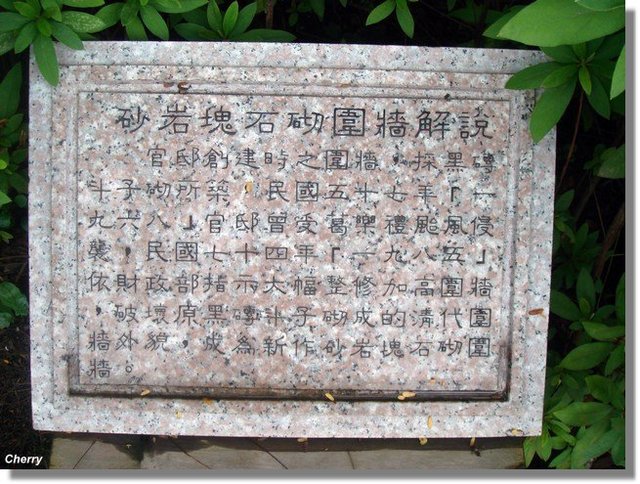 砂岩塊石砌圍牆解說
官邸創建時之圍牆，探黑磚
斗子砌所築。民國五十七年「一
九六八」官邸曾受葛樂禮颱風侵
襲，民國七十四年「一九八五」
依財政部指示大幅整修加高圍牆
，破壞原黑磚斗子砌成的清代圍
牆外貌，成為新作砂岩塊石砌圍
牆。
Cherry